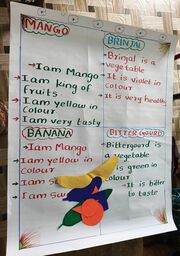 MANGO
→ I am Mango
→ I am king of
fruits
→ I am yellow in
colour
→ I am very tasty
BRINJAL
→ Brinjal is a
vegetable
→ It is violet in
colour
→ It is very healthy
BANANA
→ I am Mango
→ I am yellow in
colour
→ I am
→ I am
BITTER GOURD
→ Bittergourd is
a vegetable
is green in
colour
→ It is bitter
to taste